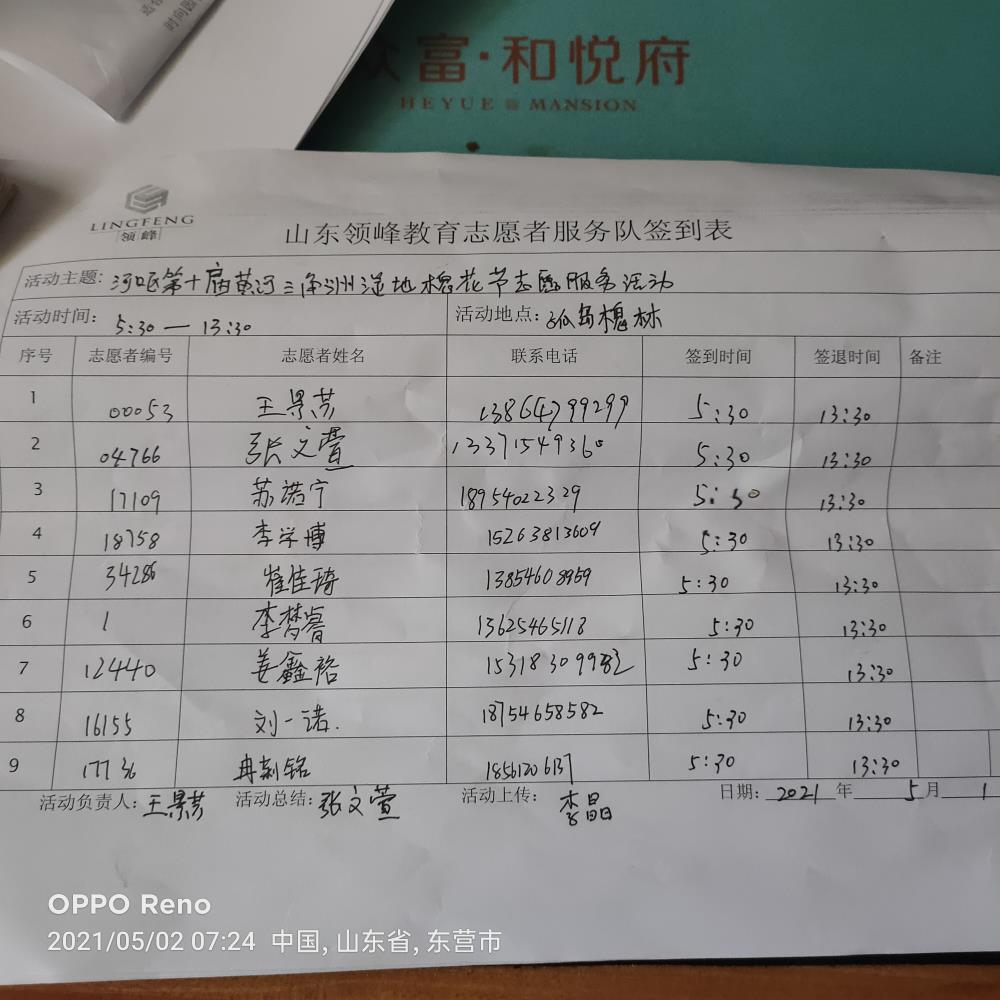 富·和悦府
HEYUE MANSION
LINGFENG
领峰
山东领峰教育志愿者服务队签到表
活动主题: 河口区第十届黄河三角洲湿地槐花节志愿服务活动
活动时间: 5:30 — 13:30 活动地点: 孤岛槐林
序号 志愿者编号 志愿者姓名 联系电话 签到时间 签退时间 备注
1 00053 王景芳 13864799299 5:30 13:30
2 04766 张文萱 13371549360 5:30 13:30
3 17109 苏诺宁 18954022329 5:30 13:30
4 18758 李学博 15263813609 5:30 13:30
5 34286 崔佳琦 13854608959 5:30 13:30
6 1 李梦睿 13625465118 5:30 13:30
7 12440 姜鑫裕 5:30 13:30
8 16155 刘一诺. 18754658582 5:30 13:30
9 17736 冉荆铭 5:30 13:30
活动负责人: 王景芳 活动总结: 张文萱 活动上传: 李晶 日期: 2021 年 5 月 1
OPPO Reno
2021/05/02 07:24 中国, 山东省, 东营市